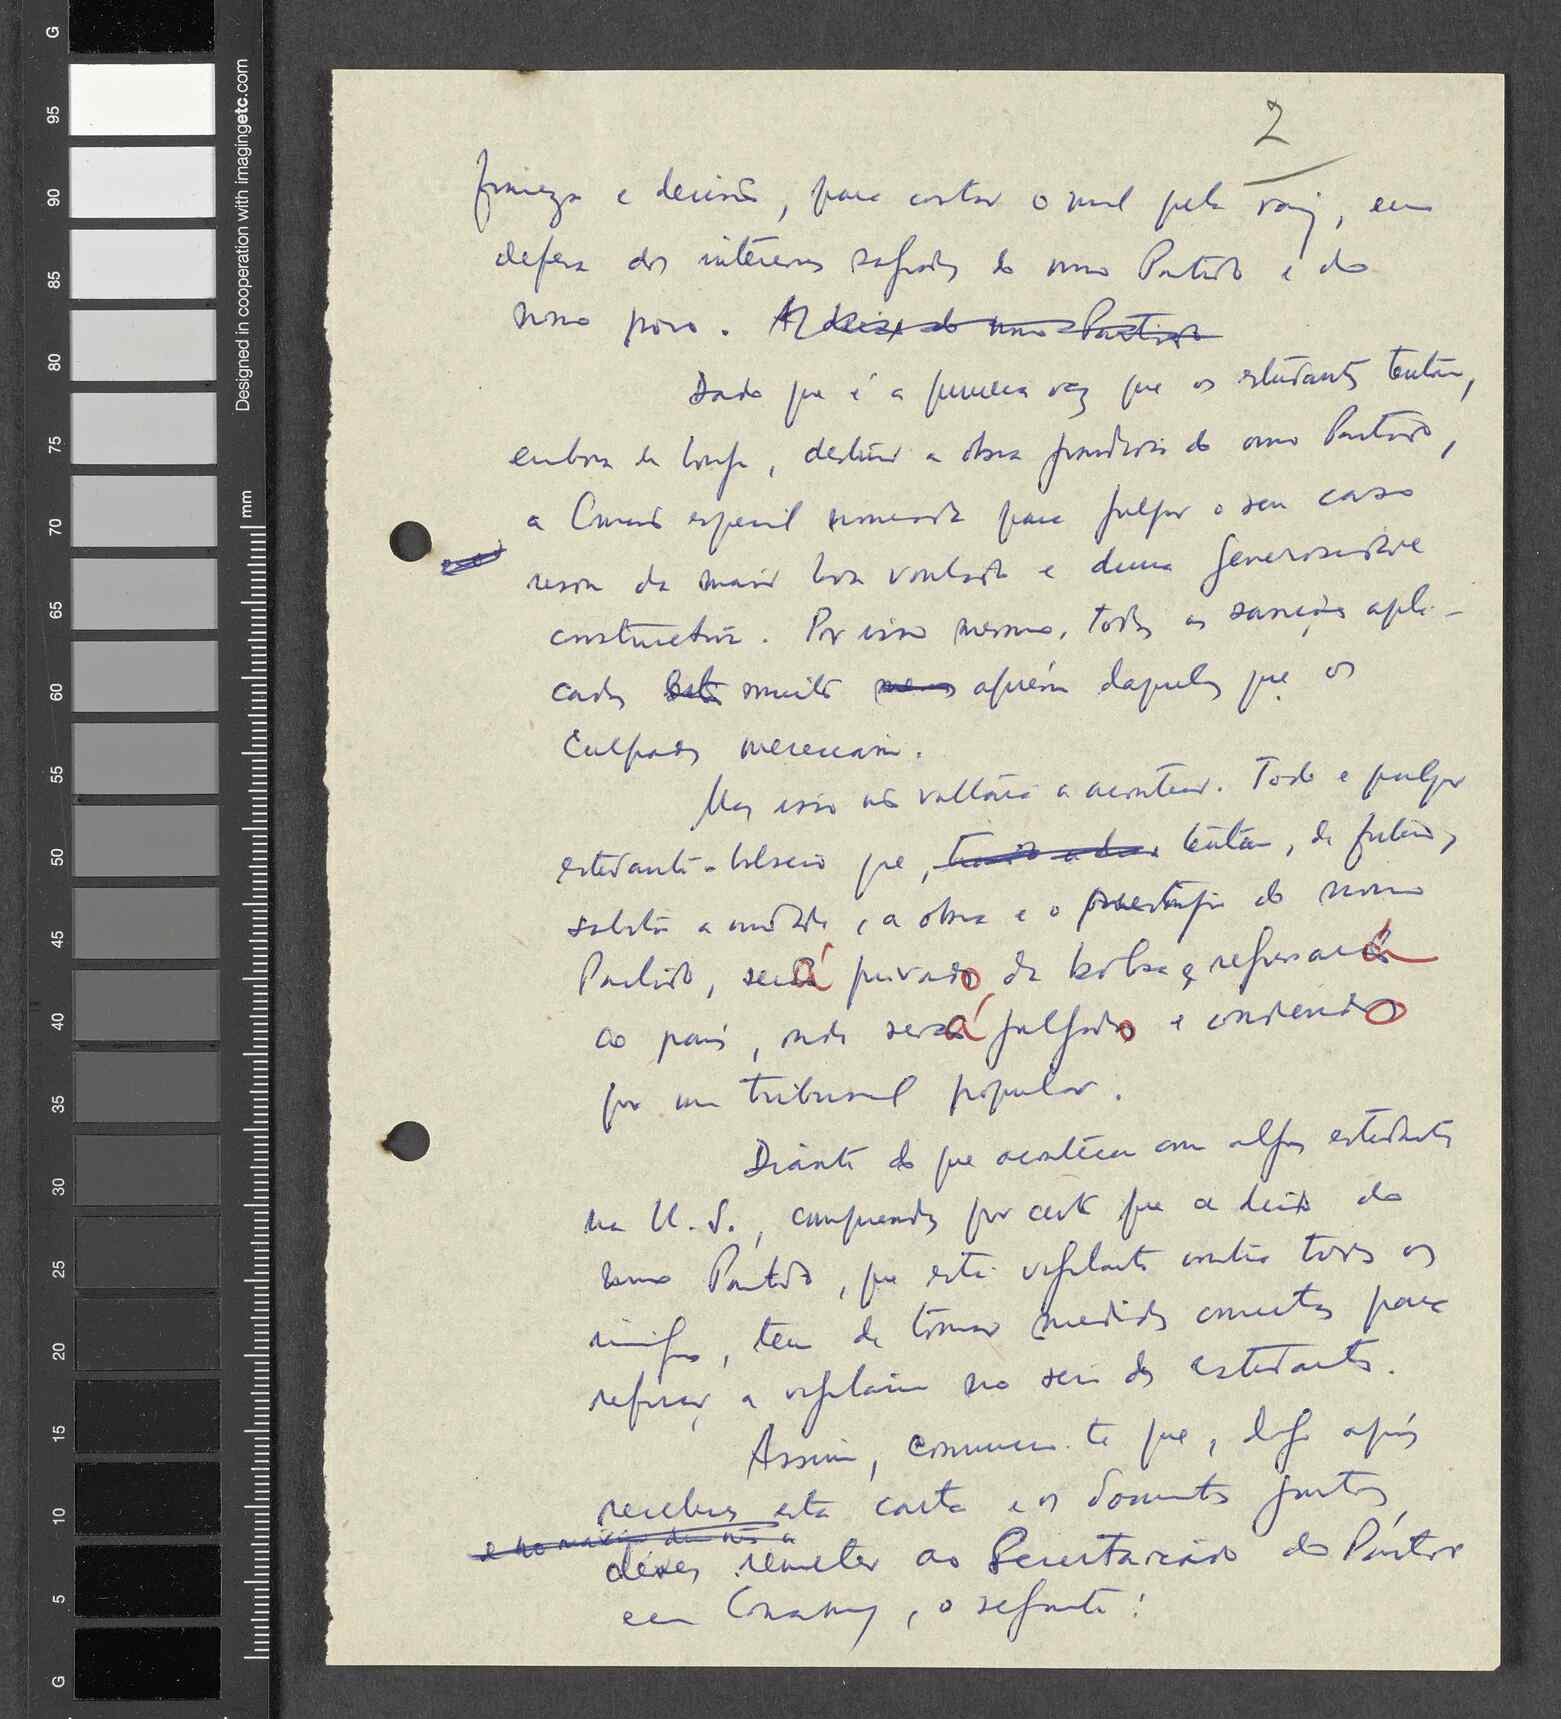 G
95
90
85
80
75
70
65
60
55
50
45
40
35
30
25
20
15
10
5
G
Designed in cooperation with imagingetc.com
mm
2
firmeza e decisão, para cortar o mal pela raiz, em
defesa dos interesses sagrados do nosso Partido e do
nosso povo. do nosso Partido
Dado que é a primeira vez que os estudantes tentam,
embora de longe, destruir a obra grandiosa do nosso Partido,
a Comissão especial nomeada para julgar o seu caso
usou da maior boa vontade e duma generosidade
construtiva. Por isso mesmo, todas as sanções apli-
cadas muito aquém daquelas que os
culpados mereciam.
Mas isso não voltará a acontecer. Todo e qualquer
estudante-bolseiro que, tentar, de futuro,
sabotar a unidade, a obra e o prestígio do nosso
Partido, será privado da bolsa e regressará
ao país, onde será julgado e condenado
por um tribunal popular.
Diante do que aconteceu com alguns estudantes
na U.S., compreendes por certo que a direcção do
nosso Partido, que está vigilante contra todos os
inimigos, tem de tomar medidas concretas para
reforçar a vigilância no seio dos estudantes.
Assim, comunico-te que, logo após
receberes esta carta e os documentos juntos,
e no máximo
deves remeter ao Secretariado do Partido
em Conakry, o seguinte: